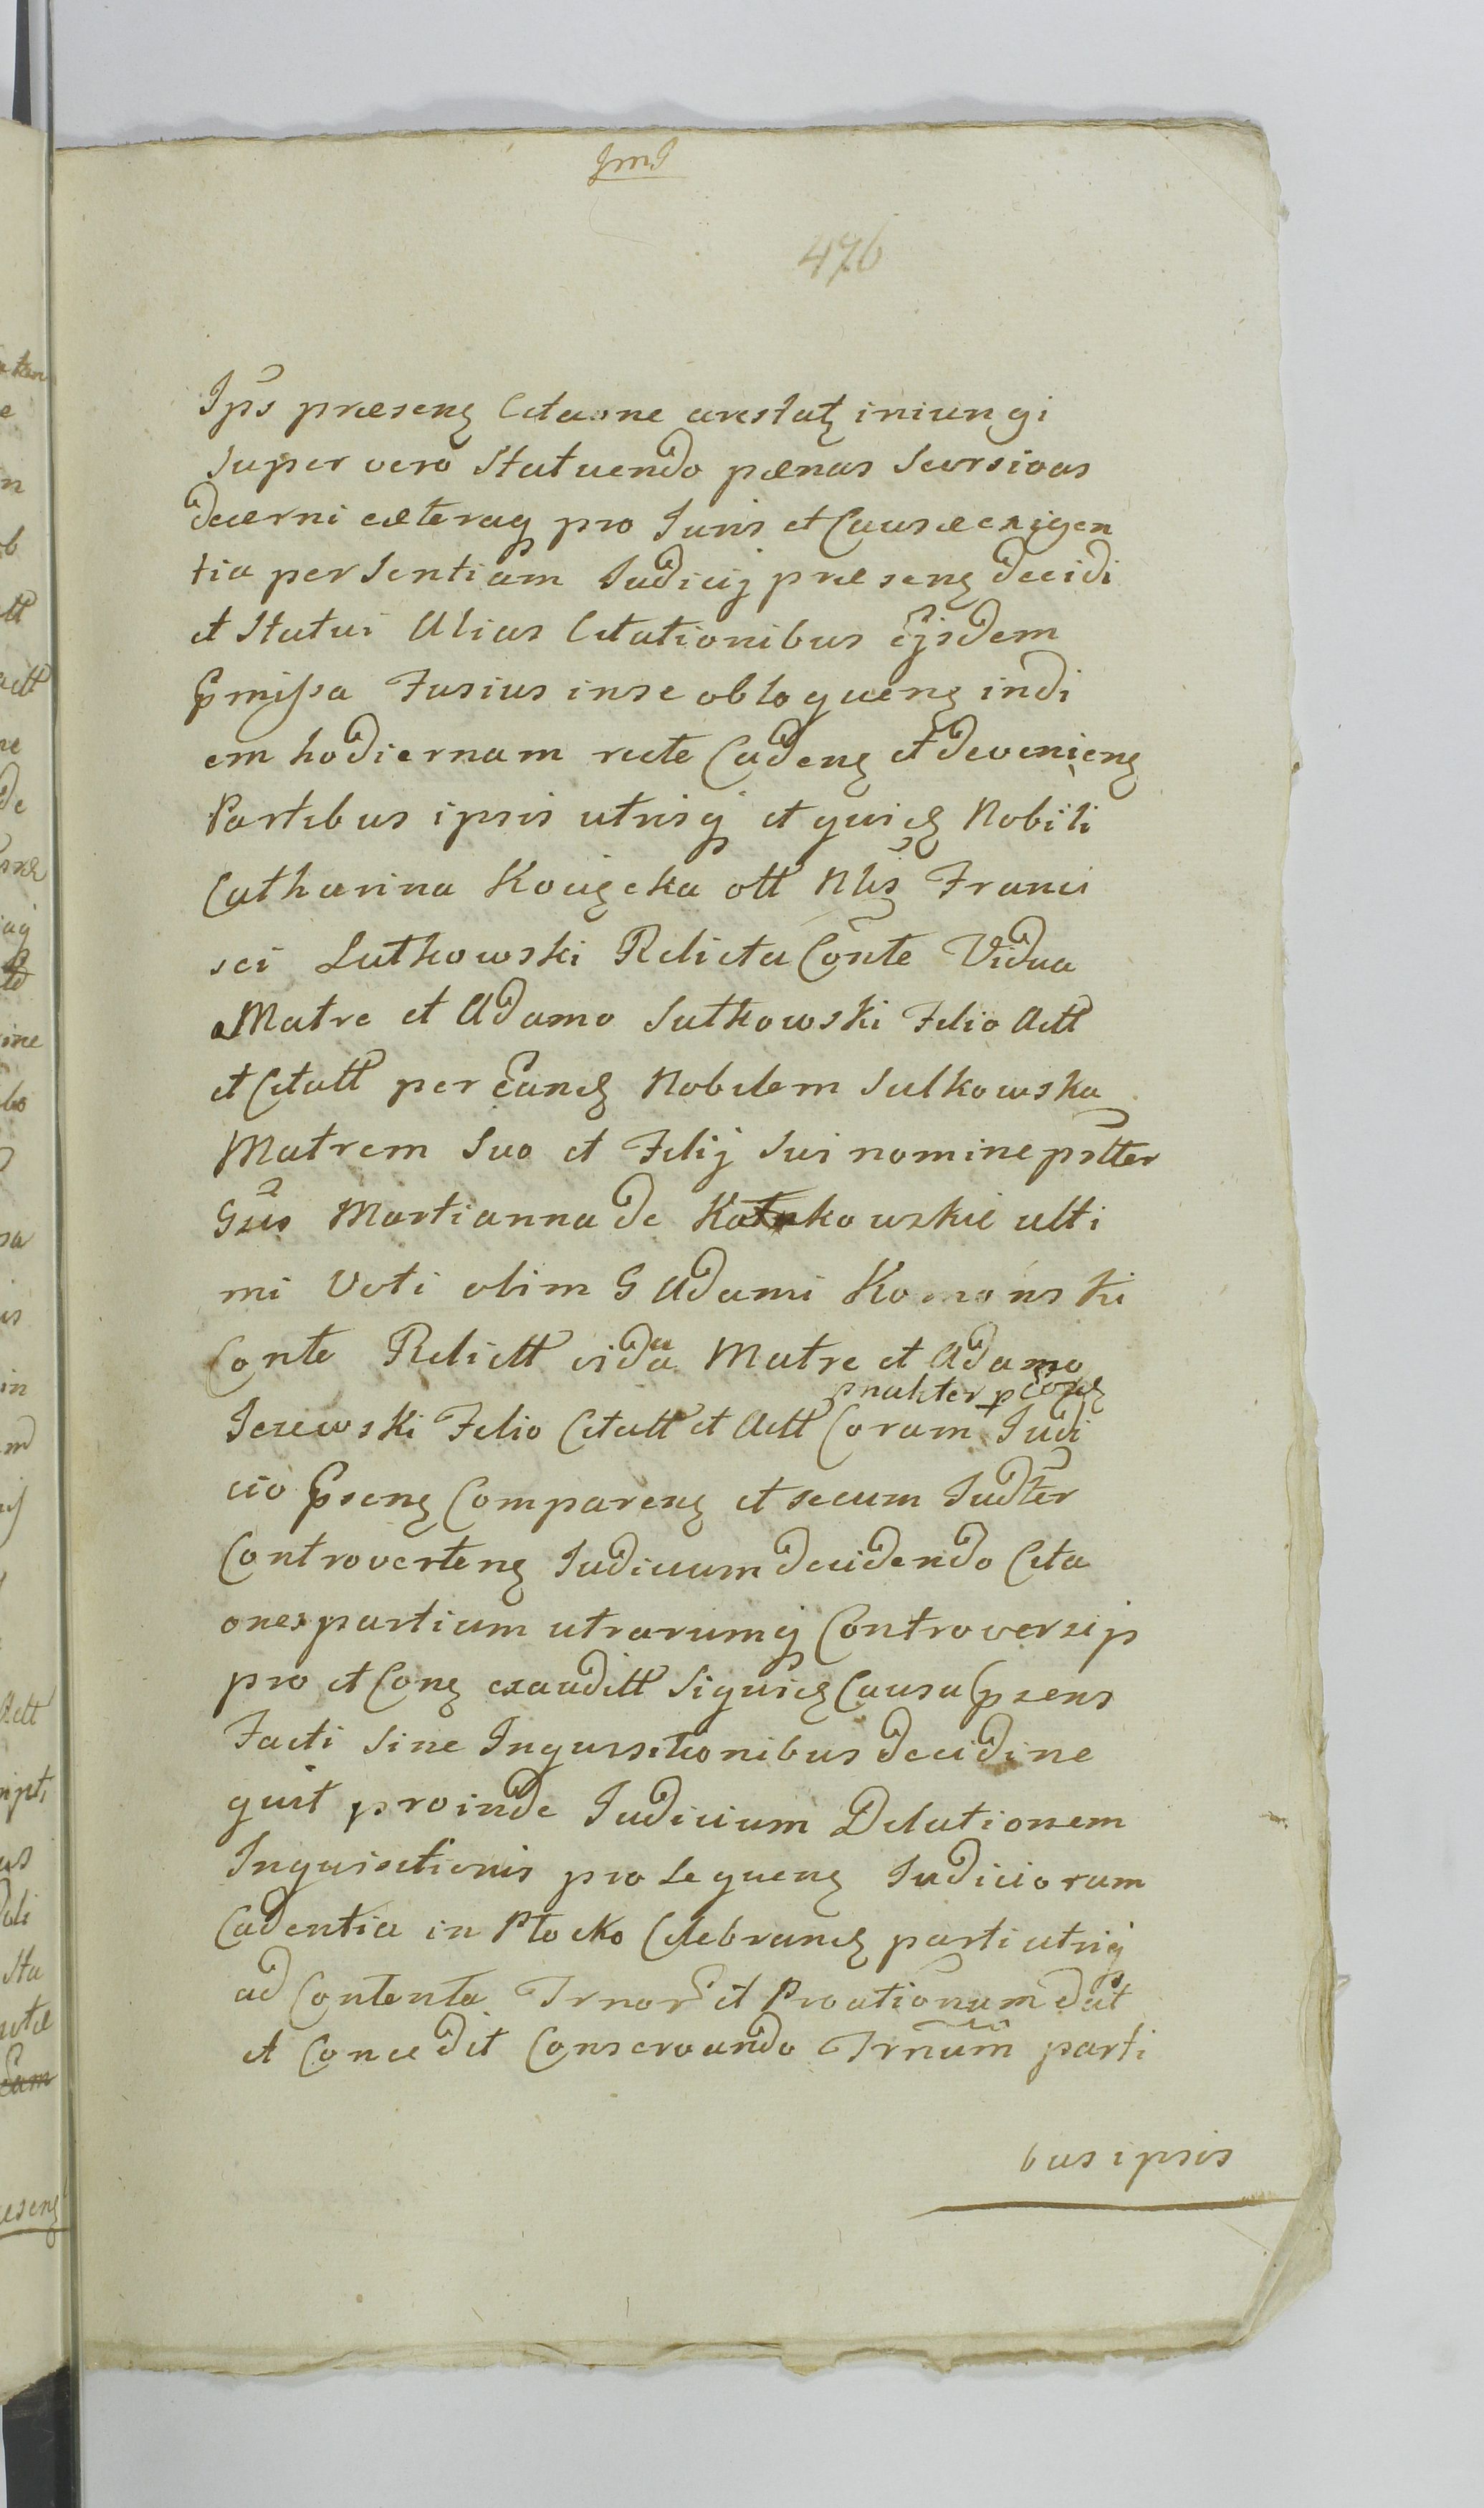 JmJ
476
Ips præsenʒ Citaone arestatʒ iniungi
super vero statuendo pænas sursivas
decerni cæteraqʒ pro Juris et Causæ exigen
tia per Sentiam Judicij præsenʒ decidi
et Statui Alias Citationibus Ejsdem
Pmissa Fusius in se obloquenʒ in di
em hodiernam recte Cadenʒ et devenienʒ
Partibus ipsis utrisqʒ et quidʒ Nobili
Catharina Kouyska olt Nlis Franci
sci Lutkowski Relicta Conte Vidua
Matre et Adamo Sutkowski Filio Actt
et Citatt per Eandʒ Nobilem Sulkowska
Matrem Suo et Filij Sui nomine psltter
Gsus Martianna de Kotrkowskie ulti
mi Voti olim G Adami Komonski
Conte Relictt vidua Matre et Adamo
psnaliter p eosdʒ
Jezewski Filio Citatt et Actt Coram Judi
cio Psenʒ Comparenʒ et secum Judter
Controvertenʒ Judicium decidendo Cita
ones partium utrarumqʒ Controversijs
pro et Conʒ exauditt Siquidʒ Causa psens
Facti sine Inquisitionibus decidi ne
quit proinde Judicium Dilationem
Inquisitionis pro sequenʒ Judiciorum
Cadentia in Plocko Celebrandʒ parti utriqʒ
ad Contenta Trnor et Proationum dat
et Concedit Conservando Trnum parti
bus ipsis